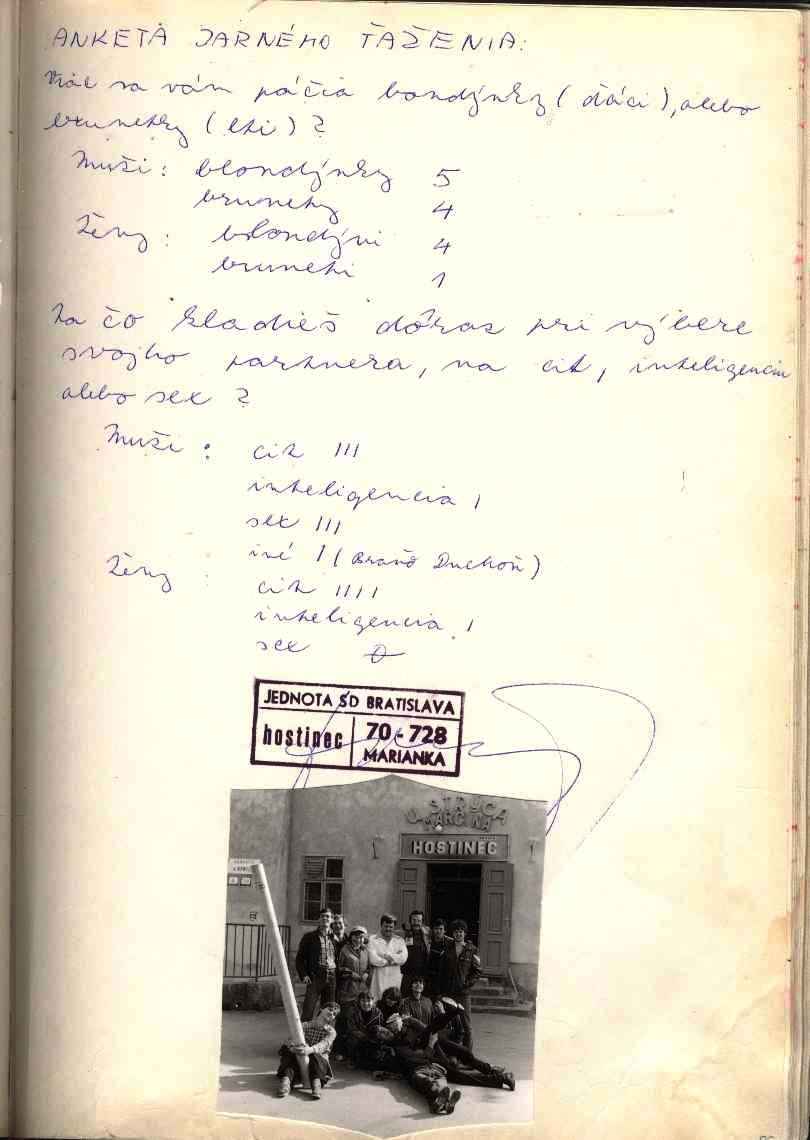 ANKETA JARNÉHO ŤAŽENIA:
Viac sa vám páčia bondýnky (ďáci), alebo
brunetky (tki)?
Muži: blondýnky 5
brunetky 4
Ženy: blondýni 4
bruneti 1
Na čo kladieš dôraz pri výbere
svojho partnera, na cit, inteligenciu
alebo sex?
Muži: cit III
inteligencia I
sex III
iné I (Braňo Duchoň)
Ženy: cit IIII
inteligencia I
sex 0
JEDNOTA SD BRATISLAVA
hostinec 70-728
MARIANKA
U STRÝCA
MARCINA
HOSTINEC